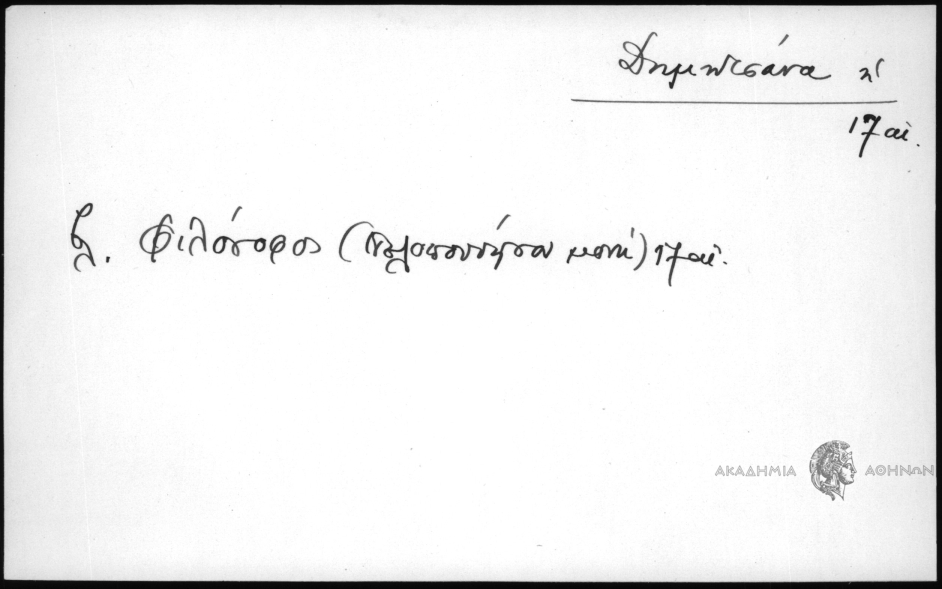 Δημητσάνα ἡ
17 αἰ.
βλ. Φιλόσοφος (Πελοποννήσου μονή) 17 αἰ.
ΑΚΑΔΗΜΙΑ ΑΘΗΝΩΝ